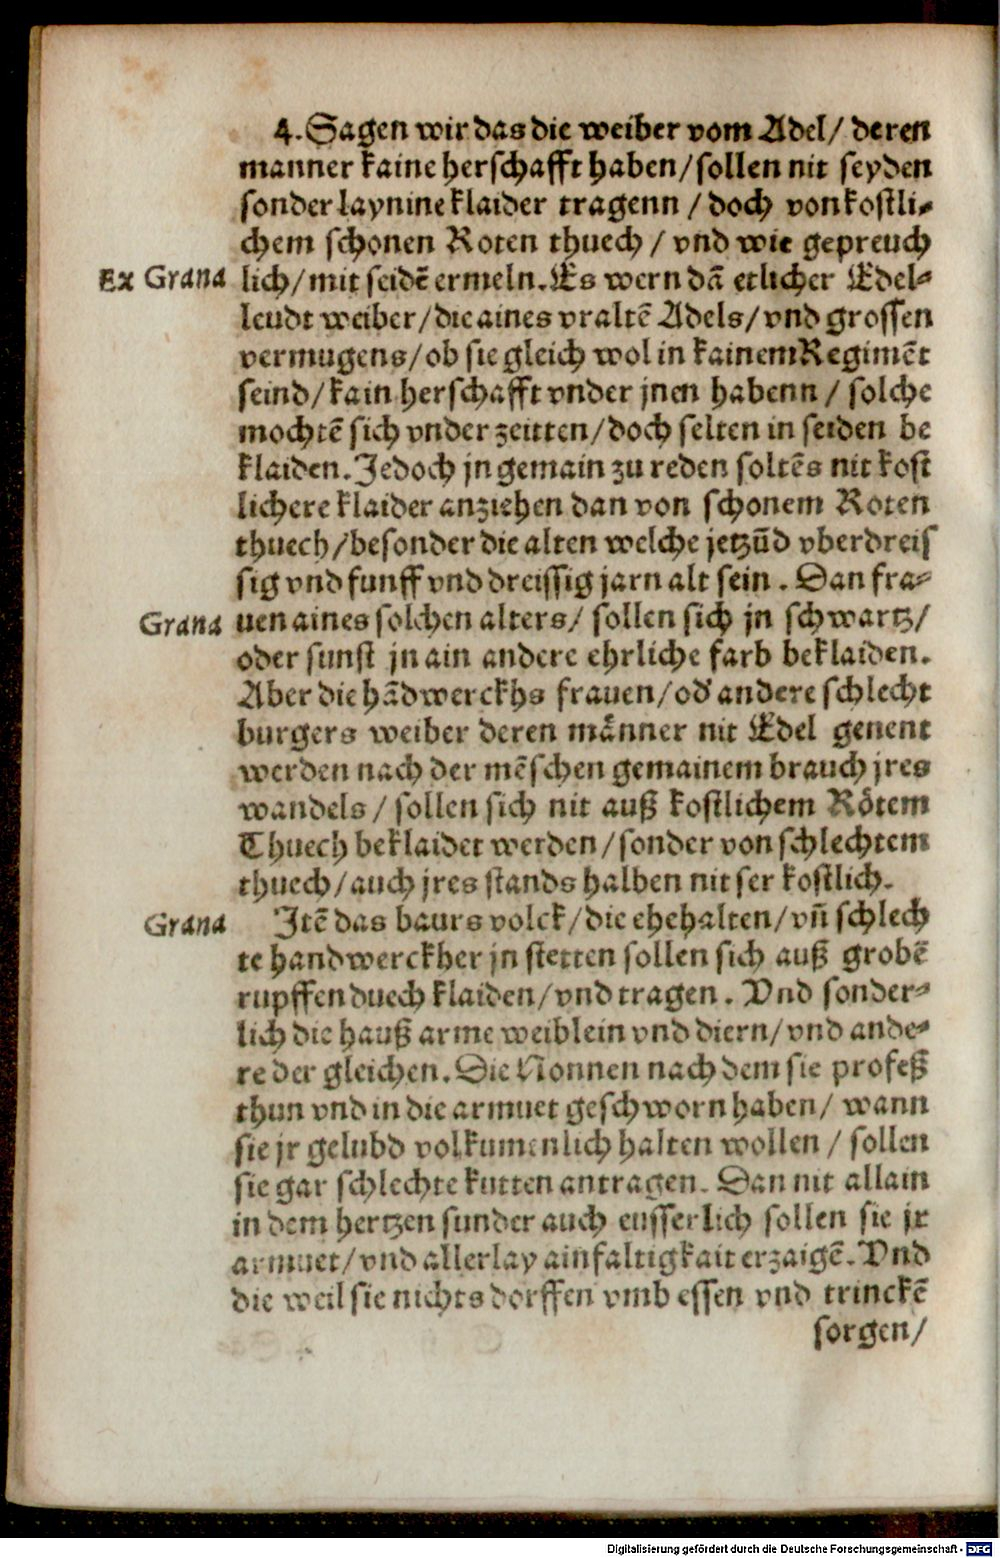 4. Sagen wir das die weiber vom Adel/ deren
manner kaine herschafft haben/ sollen nit seyden
sonder laynine klaider tragenn / doch von kostli⸗
chem schonen Roten thuech / vnd wie gepreuch
Ex Grana lich/ mit seidē ermeln. Es wern dā etlicher Edel⸗
leudt weiber/ die aines vraltē Adels/ vnd grossen
vermugens/ ob sie gleich wol in kainem Regimēt
seind/ kain herschafft vnder jnen habenn / solche
mochtē sich vnder zeitten/ doch selten in seiden be
klaiden. Jedoch jn gemain zu reden soltēs nit kost
lichere klaider anziehen dan von schonem Roten
thuech/ besonder die alten welche jetzūd vberdreis
sig vnd funff vnd dreissig jarn alt sein . Dan fra⸗
Grana uen aines solchen alters/ sollen sich jn schwartz/
oder sunst jn ain andere ehrliche farb beklaiden.
Aber die hādwerckhs frauen/ od' andere schlecht
burgers weiber deren månner nit Edel genent
werden nach der mēschen gemainem brauch jres
wandels / sollen sich nit auß kostlichem Rôtem
Thuech beklaidet werden/ sonder von schlechtem
thuech/ auch jres stands halben nit ser kostlich.
Grana Jtē das baurs volck/ die ehehalten/ vñ schlech
te handwerckher jn stetten sollen sich auß grobē
rupffen duech klaiden/ vnd tragen . Vnd sonder⸗
lich die hauß arme weiblein vnd diern/ vnd ande⸗
re der gleichen. Die Nonnen nach dem sie profeß
thun vnd in die armuet geschworn haben/ wann
sie jr gelubd volkumenlich halten wollen / sollen
sie gar schlechte kutten antragen. Dan nit allain
in dem hertzen sunder auch eusserlich sollen sie jr
armuet/ vnd allerlay ainfaltigkait erzaigē. Vnd
die weil sie nichts dorffen vmb essen vnd trinckē
sorgen/
Digitalisierung gefördert durch die Deutsche Forschungsgemeinschaft - DFG